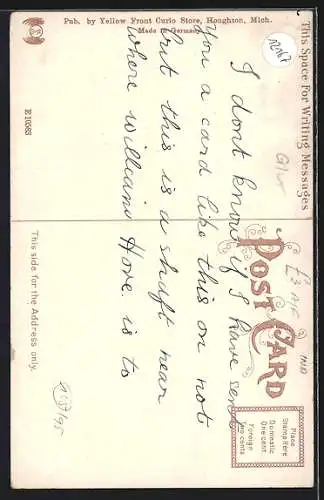 Pub. by Yellow Front Curio Store, Houghton, Mich.
Made in Germany
E 10563
This Space For Writing Messages
I dont know if I have sent
you a card like this or not
but this is a shaft near
where Hove. is to
This side for the Address only.
POST CARD
Place
Stamp Here
Domestic
One cent.
Foreign
Two cents